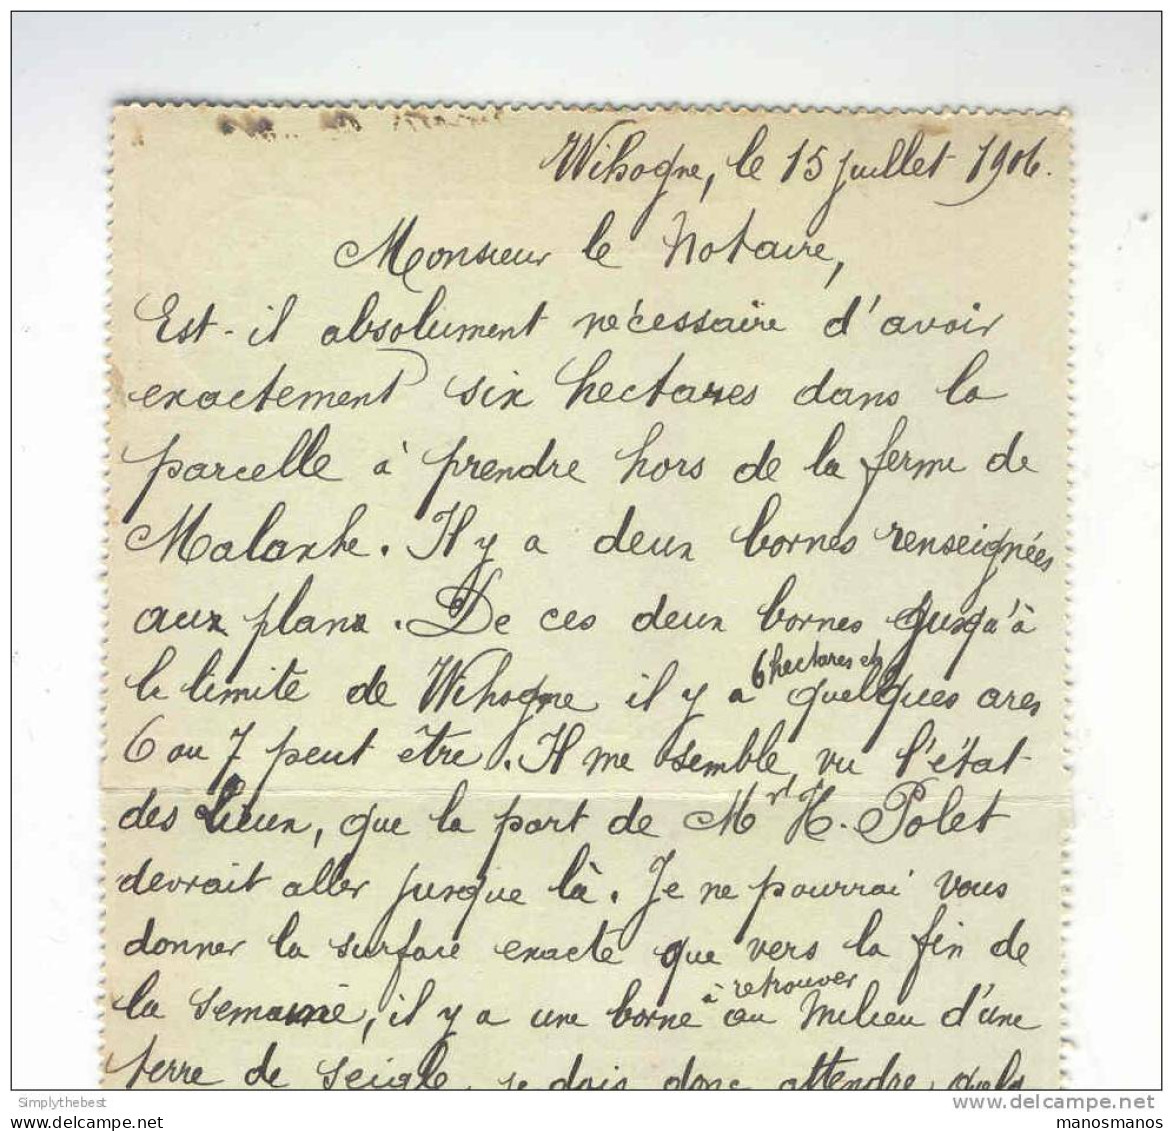 Wihogne, le 15 juillet 1906.
Monsieur le Notaire,
Est-il absolument nécessaire d'avoir
exactement six hectares dans la
parcelle à prendre hors de la ferme de
Malaxhe. Il y a deux bornes renseignées
aux plans. De ces deux bornes jusqu'à
la limite de Wihogne il y a 6 hectares et quelques ares
6 ou 7 peut être. Il me semble, vu l'état
des lieux, que la part de Mr H. Polet
devrait aller jusque là. Je ne pourrai vous
donner la surface exacte que vers la fin de
la semaine, il y a une borne à retrouver au milieu d'une
terre de seigle, je dois donc attendre
Simplythebest
delcampe.net
manosmanos
manosmanos